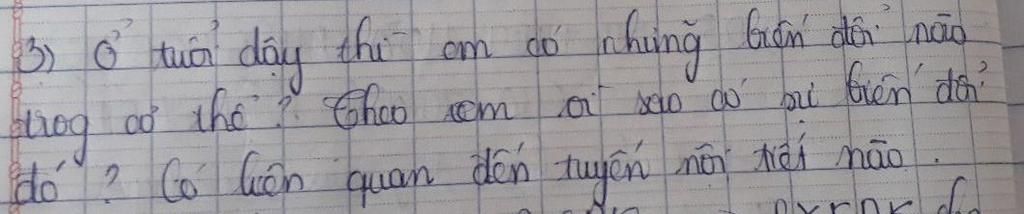 3) Ở tuổi dậy thì em có những biến đổi nào
trog cơ thể? Theo em vì sao có sự biến đổi
đó? Có liên quan đến tuyến nội tiết nào.